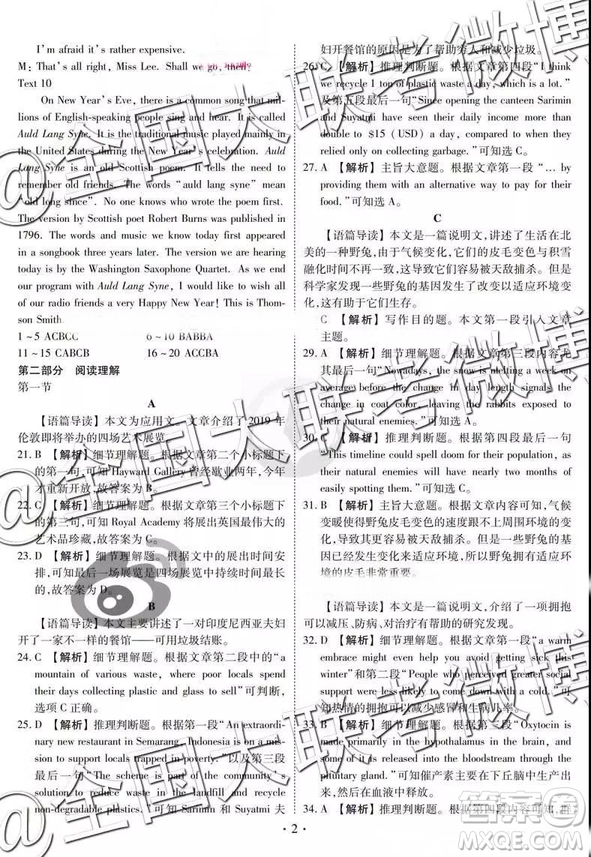 I'm afraid it's rather expensive.
M: That's all right, Miss Lee. Shall we go, then?
Text 10
On New Year's Eve, there is a common song that mil-
lions of English-speaking people sing and hear. It is called
Auld Lang Syne. It is the traditional music played in
the United States during the New Year's celebration. Auld
Lang Syne is an old Scottish poem. It tells of the need
to remember old friends. The words "auld lang syne" mean
"old long since". No one knows who wrote the poem first.
The version by Scottish poet Robert Burns was published in
1796. The words and music we know today first appeared
in a songbook three years later. The version we are hearing
today is by the Washington Saxophone Quartet. As we end
our program with Auld Lang Syne, I would wish all
of our radio friends a very Happy New Year! This is Thom-
son Smith.
1~5 ACBCC 6~10 BABBA
11~15 CABCB 16~20 ACCBA
第二部分 阅读理解
第一节
A
【语篇导读】本文为应用文。文章介绍了2019年
伦敦即将举办的四场艺术展览。
21. B 【解析】细节理解题。根据文章第二个小标题下
的第二句,可知 Hayward Gallery 曾经歇业两年,今年
才重新开放,故答案为 B。
22. C 【解析】细节理解题。根据文章第三个小标题下
的第三句,可知 Royal Academy 将展出英国最伟大的
艺术品珍藏,故答案为 C。
23. D 【解析】细节理解题。根据文章中的展出时间安
排,可知最后一场展览是四场展览中持续时间最长
的,故答案为 D。
B
【语篇导读】本文主要讲述了一对印度尼西亚夫妇
开了一家不一样的餐馆——可用垃圾结账。
24. C 【解析】细节理解题。根据文章第二段中的"a
mountain of various waste, where poor locals would
spend their days collecting plastic and glass to sell"可判断,
选项 C 正确。
25. D 【解析】推理判断题。根据第一段"An extraordi-
nary new restaurant in Semarang, Indonesia is on a mis-
sion to benefit the poor while reducing waste."以及第三段
最后一句"The scheme is part of the community's
solution to reduce waste in the landfill and recycle
non-degradable plastics."可知 Sarimin 和 Suyatmi 夫
妇开餐馆的原因是为了帮助穷人和减少垃圾。
26. C 【解析】推理判断题。根据文章第四段"I think
we recycle 1 ton of plastic waste a day, which is a lot."
及第五段最后一句"Since opening the canteen Sarimin
and Suyatmi have seen their daily income more than
double to $15 (USD) a day, compared to when they
relied only on collecting garbage."可知选 C。
27. A 【解析】主旨大意题。根据文章第一段"… by
providing them with an alternative way to pay for their
food."可知选 A。
C
【语篇导读】本文是一篇说明文,讲述了生活在北
美的一种野兔,由于气候变化,它们的皮毛变色与积雪
融化时间不再一致,这导致它们容易被天敌捕杀。但
科学家发现一些野兔的基因发生了改变以适应环境变
化,这有助于它们生存。
C 【解析】写作目的题。第一段引入文章
主题。
29. A 【解析】细节理解题。根据文章第三段内容
"Nowadays, the snow is melting much earlier on
average before the hares have a chance to make the
change in coat color, leaving them exposed to
"可知选 A。
30. A 【解析】推理判断题。根据第四段最后一句
"This timeline could spell doom for their population, as
their natural enemies will have nearly two months of
easily spotting them."可知选 A。
31. A 【解析】推理判断题。根据文章最后一段,气候
变暖使得野兔皮毛变色的速度跟不上周围环境的变
化,导致其数量减少,更加适应周围环境的野兔的
基因已经发生了变化,这对于野兔适应环境变化
的皮毛非常重要。
【语篇导读】本文是一篇说明文,介绍了一项拥抱可
以减压、防病、对治疗有帮助的研究发现。
32. D 【解析】细节理解题。根据文章第一段中"a warm
embrace might even help you avoid getting sick this
winter. People who perceived greater social
support were less likely to come down with a cold"可
知热情的拥抱可以减轻感和生病几率。
33. B 【解析】细节理解题。根据文章第三段"Oxytocin is
made primarily in the hypothalamus in the brain. Some
of it gets released into the bloodstream through the
pituitary gland."可知催产素主要在下丘脑中产生,
然后释放到血液中。
34. A 【解析】推理判断题。根据第四段内容可知,
· 2 ·
@全国大联考微博
@全国大联考微博
答案圈
MXQE.COM